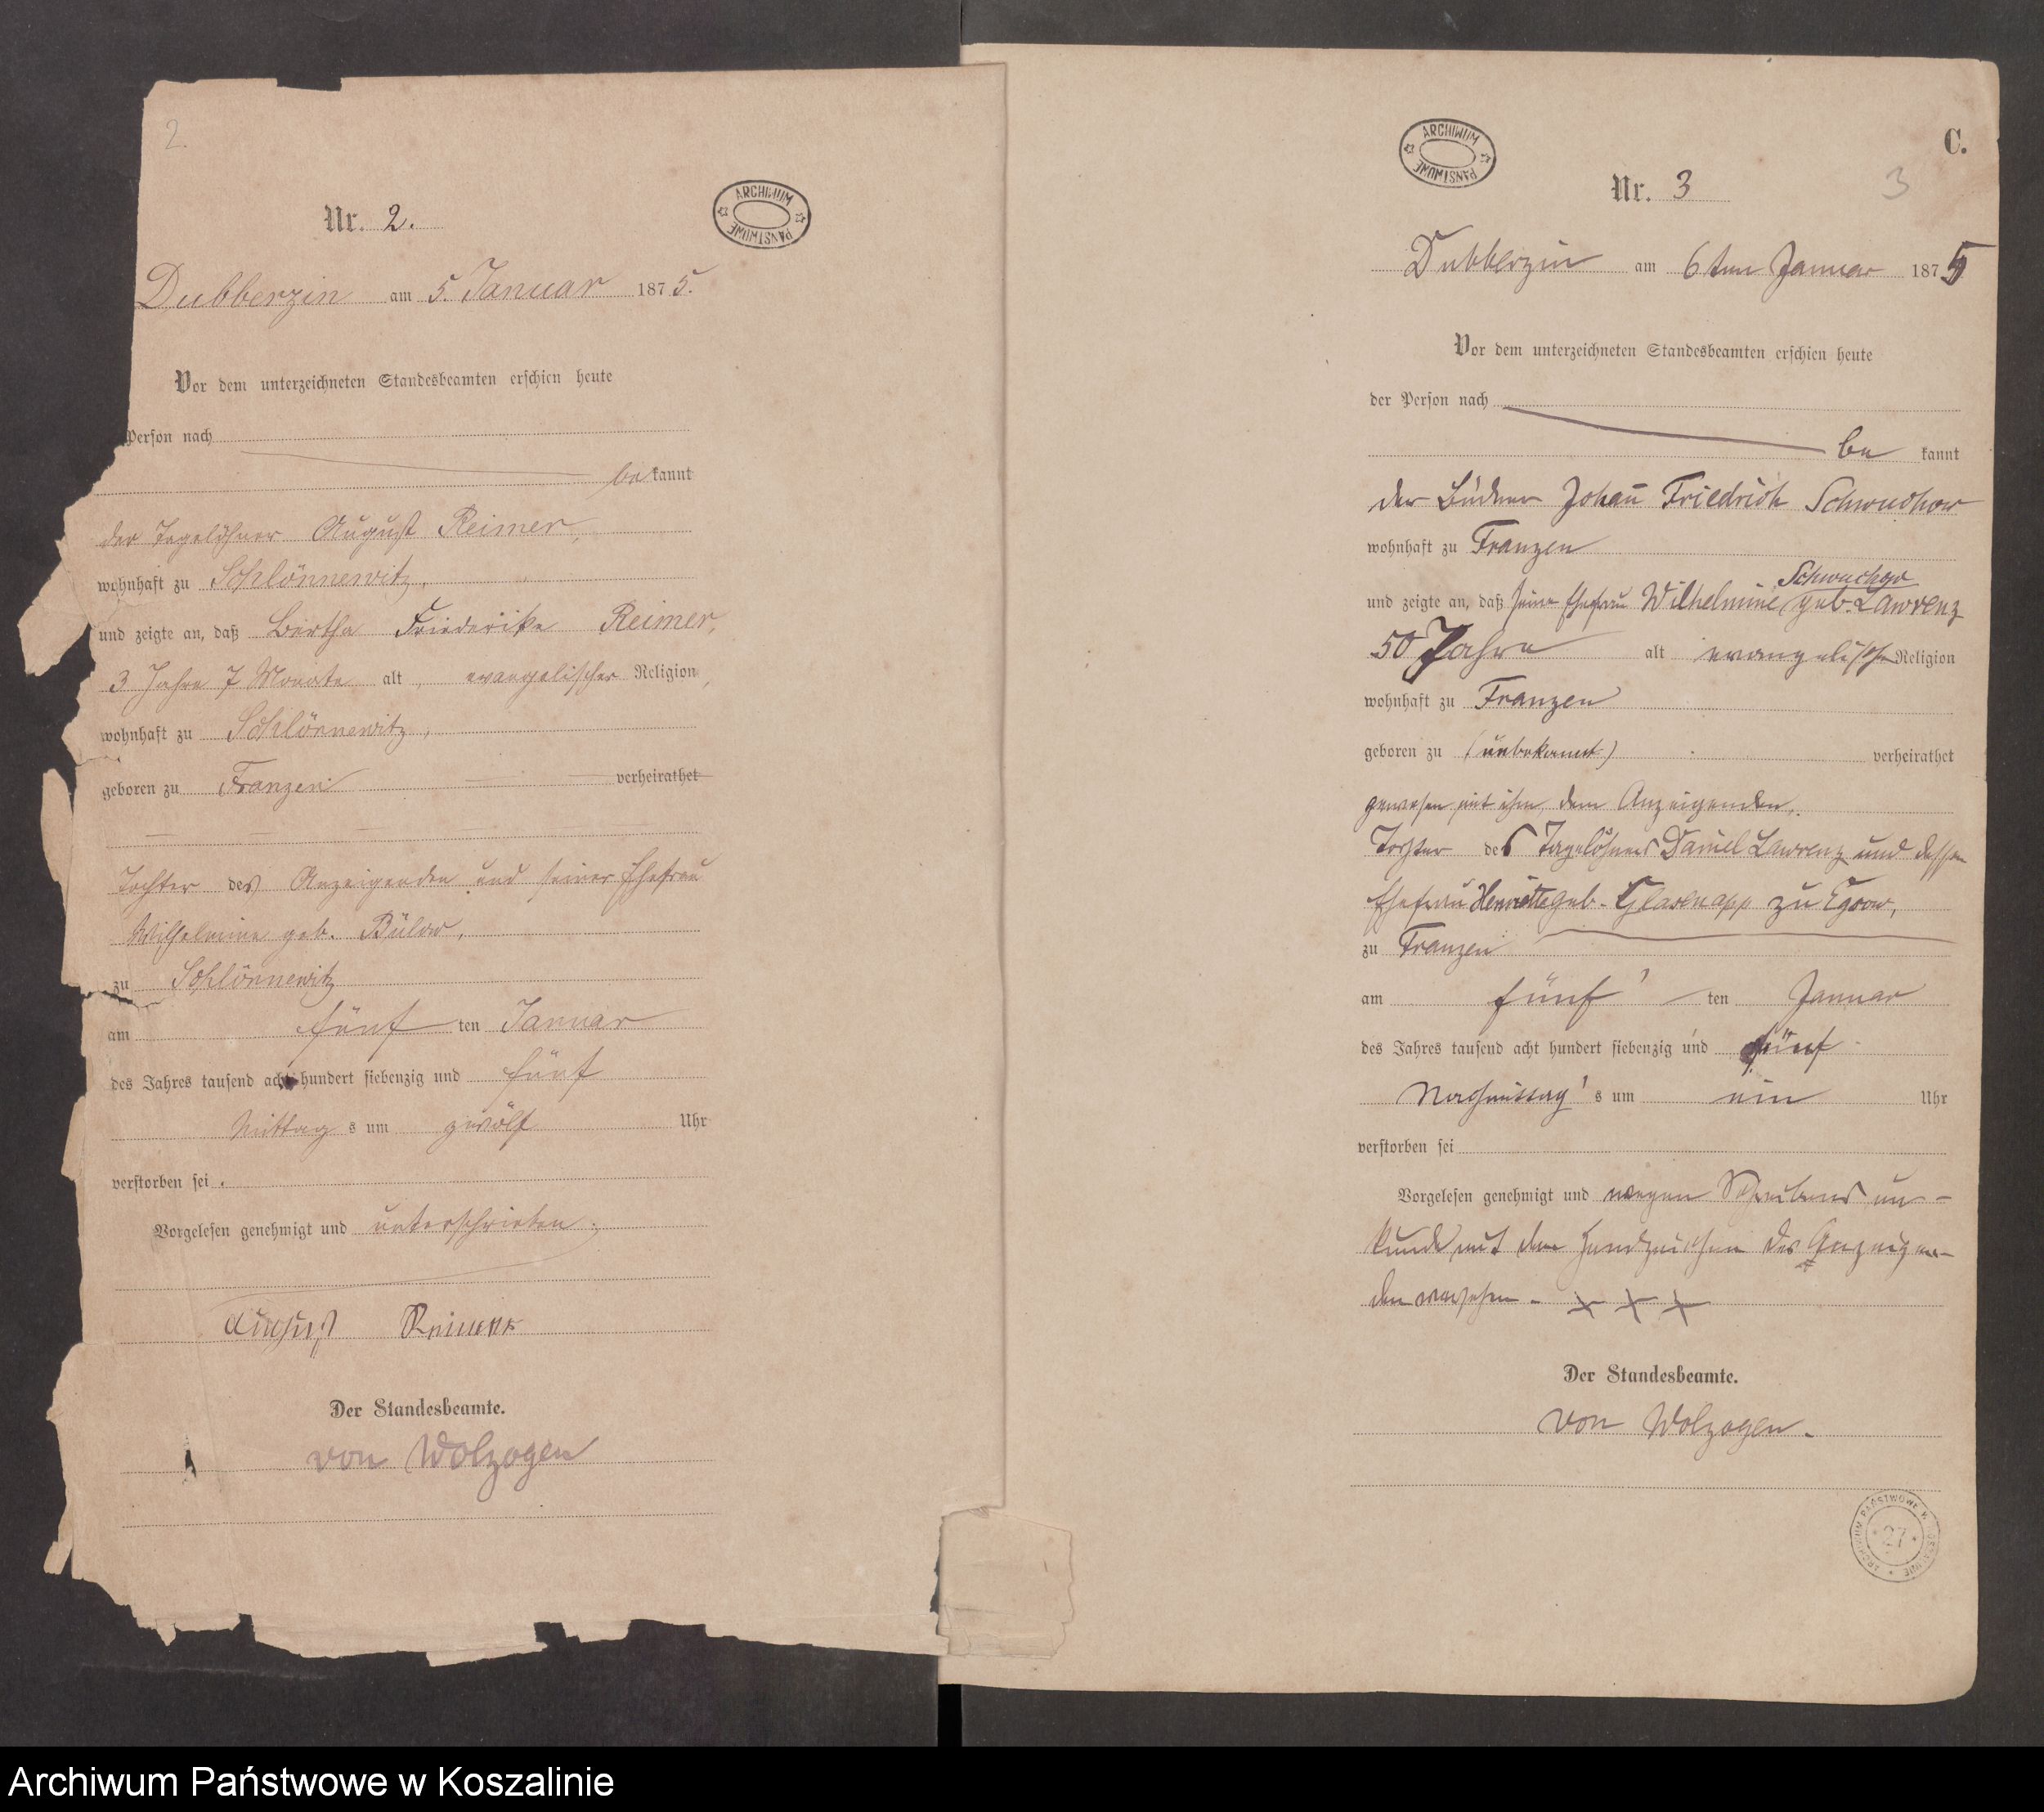 2.
ARCHIWUM
PAŃSTWOWE
Nr. 2.
Dubberzin am 5. Januar 1875.
Vor dem unterzeichneten Standesbeamten erschien heute
Person nach
be kannt
der Tagelöhner August Reimer,
wohnhaft zu Schlönnewitz,
und zeigte an, daß Bertha Friederike Reimer,
3 Jahre 7 Monate alt, evangelischer Religion,
wohnhaft zu Schlönnewitz,
geboren zu Franzen verheirathet
Tochter des Anzeigenden und seiner Ehefrau
Wilhelmine geb. Bülow,
zu Schlönnewitz
am fünf ten Januar
des Jahres tausend acht hundert siebenzig und fünf
Mittag s um zwölf Uhr
verstorben sei.
Vorgelesen genehmigt und unterschrieben.
August Reimer
Der Standesbeamte.
von Wolzogen
ARCHIWUM
PAŃSTWOWE
C.
Nr. 3
3
Dubberzin am 6ten Januar 1875
Vor dem unterzeichneten Standesbeamten erschien heute
der Person nach
be kannt
der Büdner Johañ Friedrich Schwuchow
wohnhaft zu Franzen
Schwuchow
und zeigte an, daß seine Ehefrau Wilhelmine geb. Lawrenz
50 Jahre alt evangelische Religion
wohnhaft zu Franzen
geboren zu (unbekannt) verheirathet
gewesen mit ihm, dem Anzeigenden,
Tochter des Tagelöhners Daniel Lawrenz und dessen
Ehefrau Henriette geb. Glasenapp zu Egsow,
zu Franzen
am fünf ten Januar
des Jahres tausend acht hundert siebenzig und fünf
Nachmittag s um ein Uhr
verstorben sei
Vorgelesen genehmigt und wegen Schreibens un-
kunde mit dem Handzeichen des Anzeigen-
den versehen. X X X
Der Standesbeamte.
von Wolzogen.
ARCHIWUM PAŃSTWOWE W KOSZALINIE
27
Archiwum Państwowe w Koszalinie